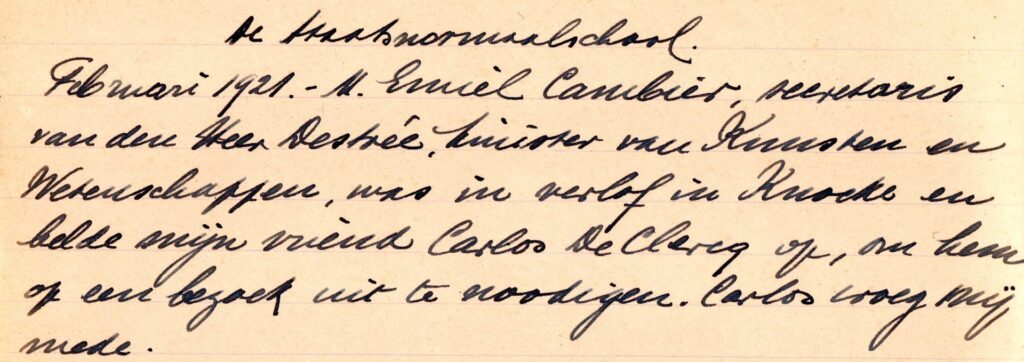 De Staatsnormaalschool.
Februari 1921. - M. Emiel Cambier, secretaris
van den Heer Destrée, Minister van Kunsten en
Wetenschappen, was in verlof in Knocke en
belde mijn vriend Carlos De Clercq op, om hem
op een bezoek uit te noodigen. Carlos vroeg mij
mede.